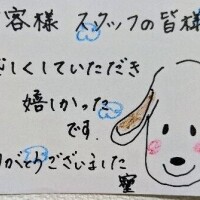 客様 スタッフの皆様
しくしていただき
嬉しかった
です.
がとうございました